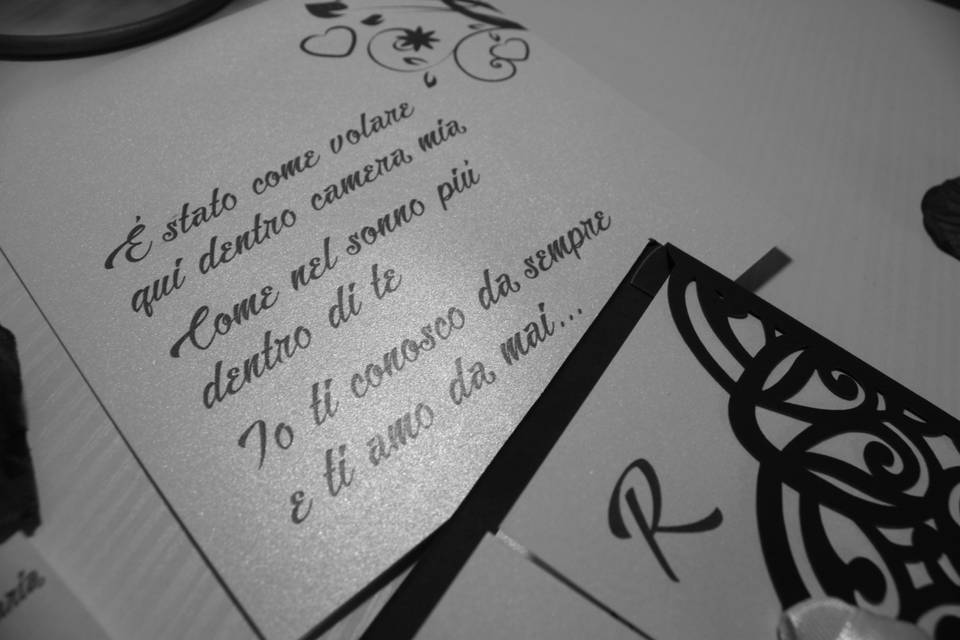 È stato come volare
qui dentro camera mia
Come nel sonno più
dentro di te
Io ti conosco da sempre
e ti amo da mai...
R